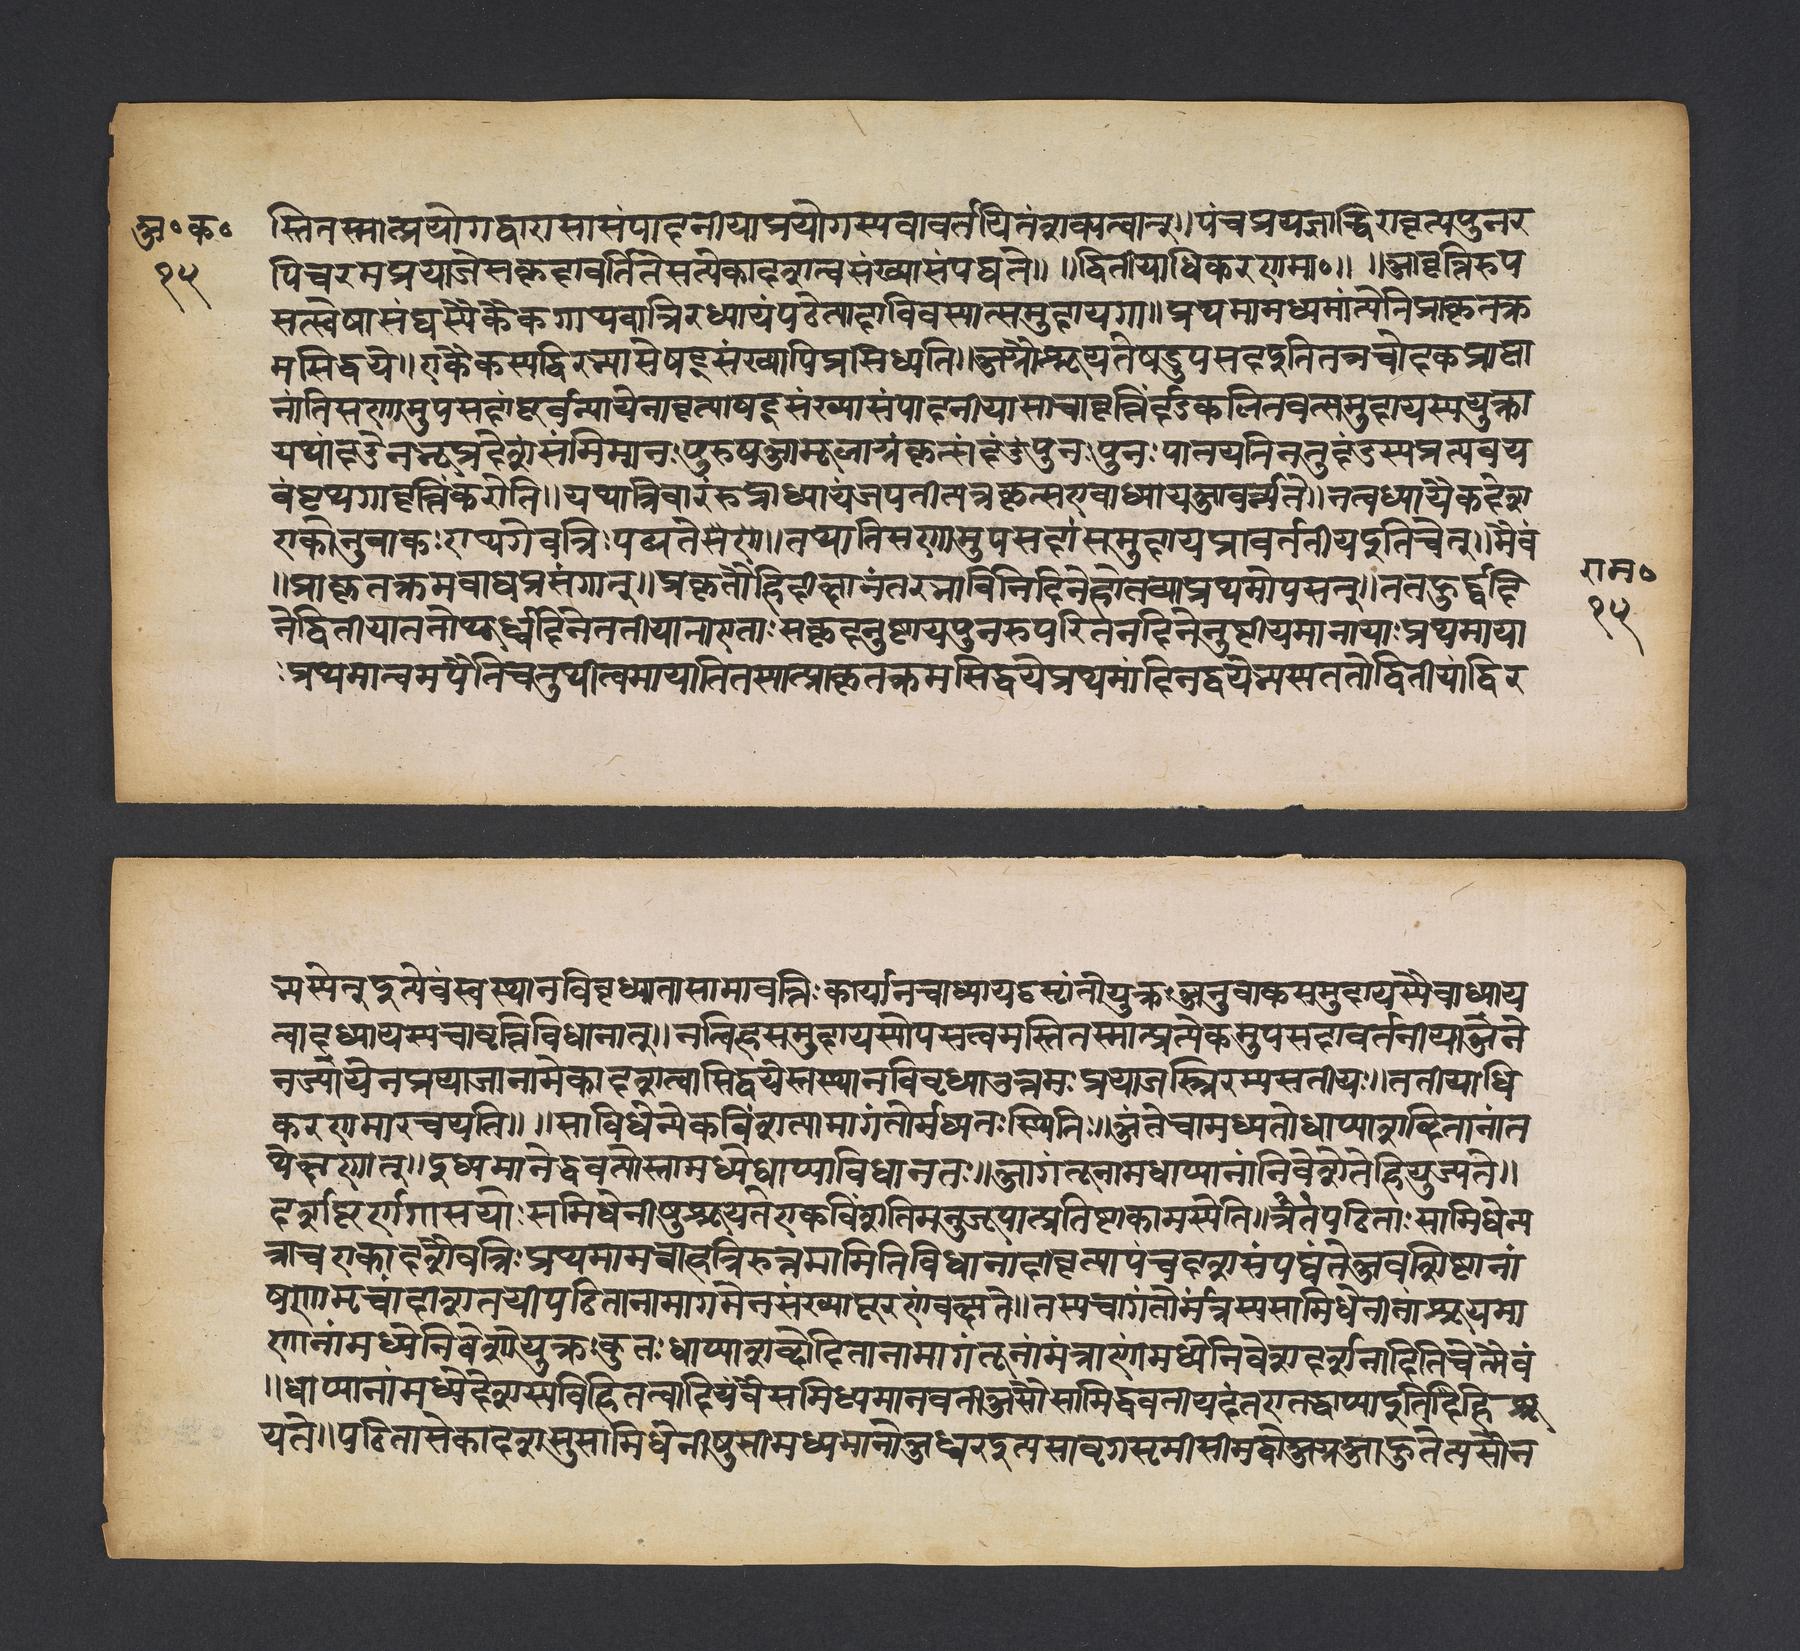 अ॰क॰
१५
स्तितस्मात्प्रयोगद्वारासासंपादनीयाप्रयोगस्यवावर्तयितंशक्यत्वात्॥पंचप्रयजान्द्विरावृत्यपुनर
पिचरमप्रयाजेसकृदावर्तितेसत्येकादशत्वसंख्यासंपद्यते॥ ॥द्वितीयाधिकरणमा॰॥ ॥आवृत्तिरुप
सत्स्वेषासंघस्यैकैकगाथवात्रिरध्यायंपठेत्यादाविवस्यात्समुदायगा॥प्रथमामध्यमांत्येतिप्राकृतक्र
मसिद्धये॥एकैकस्यद्विरभ्यासेषट्संख्यापिप्रसिध्यति॥अग्नौश्रूयतेषडुपसदइतितत्रचोदकप्राप्ता
नांतिसणामुपसदांपूर्वन्यायेनावृत्याषट्संख्यासंपादनीयासाचावृत्तिर्दंडकलितवत्समुदायस्ययुक्ता
यथादंडेनभूप्रदेशंसंमिमानःपुरुषआमूलाग्रंकृत्स्नंदंडंपुनःपुनःपातयतिनतुदंडस्यप्रत्यवय
वंपृथगावृत्तिंकरोति॥यथात्रिवारंरुद्राध्यायंजपतीत्यत्रकृत्स्नएवाध्यायआवर्त्यते॥नत्वध्यायैकदेश
एकोनुवाकःपृथगेवत्रिःपठ्यतेसेएण॥तथातिसणामुपसदांसमुदायआवर्तनीयइतिचेत्॥मैवं
॥प्राकृतक्रमबाधप्रसंगात्॥प्रकृतौहिदीक्षानंतरभाविनिदिनेहोतव्याप्रथमोपसत्॥ततऊर्द्ध्वदि
नेद्वितीयाततोप्यूर्ध्वदिनेततीयातारताःसकृदनुष्टायपुनरुपरितनदिनेनुष्टीयमानायाःप्रथमाया
ःप्रथमात्वमपैतिचतुर्थीत्वमायातितस्मात्प्राकृतक्रमसिद्धयेप्रथमांदिनद्वयेभ्यस्यततोद्वितीयांद्विर
राम॰
१५
भ्यस्येत्इत्येवंस्वस्थानविवृध्यातासामावत्तिःकार्यानचाध्यायदृष्टांतोयुक्तःअनुवाकसमुदायस्यैवाध्याय
त्वादध्यायस्यचावृत्तिविधानात्॥नत्विहसमुदायस्योपसत्वमस्तितस्मात्प्रत्येकमुपसदावर्तनीयाअने
नन्यायेनप्रयाजानामेकादशत्वासिद्वयेस्वस्थानविवृध्याउत्तमःप्रयाजस्त्रिरभ्यसतीयः॥ततीयाधि
करणमारचयति॥ ॥सामिधेन्येकविंशत्यामागंतोर्मध्यतःस्थितिः॥अंतेवामध्यतोधाय्याशब्दितानांत
थेक्षणात्॥इध्यमानेद्धवत्योस्तामध्येधाय्याविधानतः॥आगंतूनामधाय्यानांनिवेशोंतेहियुज्यते॥
दर्शादेर्रागासयोःसमिधेनीषुश्रूयतेएकविंशतिमनुब्रूयात्प्रतिष्टाकामस्येति॥तंत्रपठिताःसामिधेन्य
त्राचएकादशैवत्रिःप्रथमामन्वाहत्रिरुत्तमामितिविधानादावृत्यापंचदशसंपद्यंतेअवशिष्टानां
षणामृचांदाशतयीपठितानामागमेनसंख्यापूरणंवक्ष्यते॥तस्यचागंतोर्मंत्रस्यसामिधेनीनांश्रूयमा
णानांमध्येनिवेशोयुक्तःकुतःधाय्याशब्दोदितानामागंतूनांमंत्राणांमध्येनिवेशदर्शनादितिचेत्मैवं
॥धाय्यानांमध्यदेशस्यविहितत्वादियंवैसमिध्यमानवतीअसौसामिद्धवतीयदंतरातद्धाय्याइतिहिश्रू
यते॥पठितास्वेकादशसुसामिधेनीषुसामध्यमानोअध्वरइत्यसावृगसृमीसीमद्वोअग्नआहुतेत्यसौन